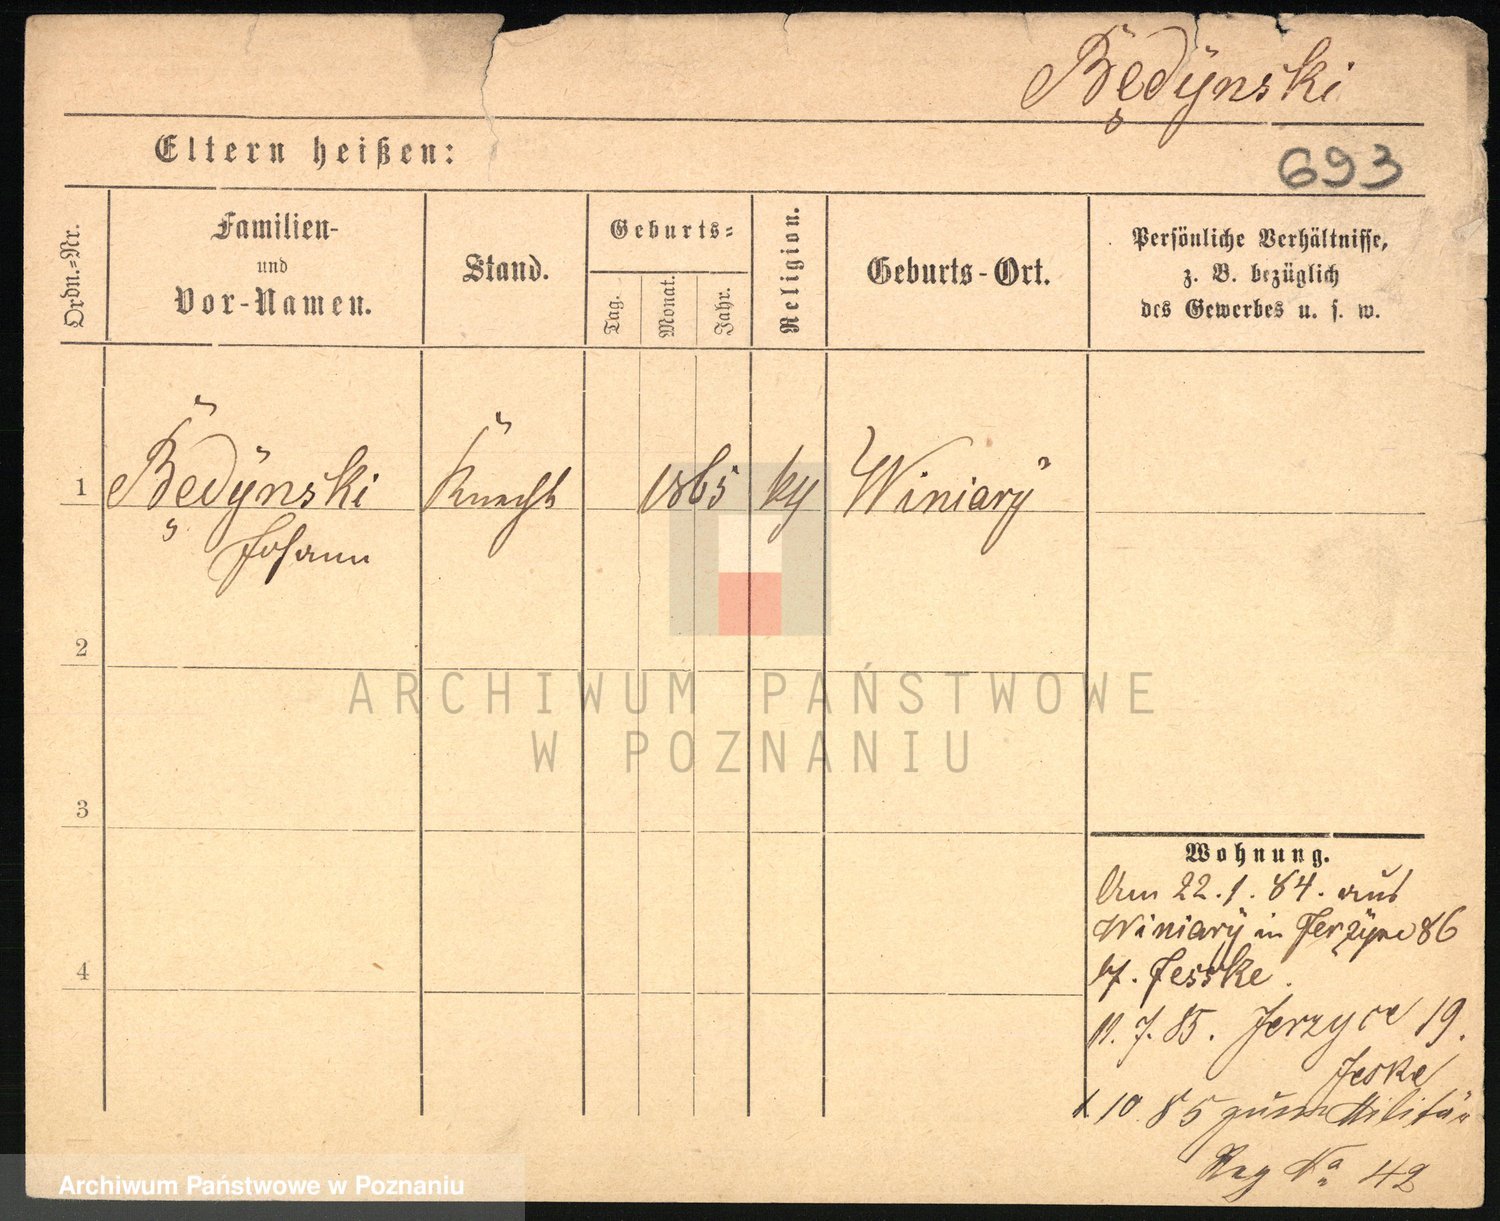 Będÿnski
693
Eltern heißen:
Ordn.=Nr.
Familien-
und
Vor-Namen.
Stand.
Geburts=
Tag.
Monat.
Jahr.
Religion.
Geburts-Ort.
Persönliche Verhältnisse,
z. B. bezüglich
des Gewerbes u. s. w.
1
Będÿnski
Johann
Knecht
1865
Winiarÿ
2
3
4
ARCHIWUM PAŃSTWOWE
W POZNANIU
Wohnung.
Am 22.1.84. aus
Winiarÿ in 86
Jesske.
11.7.85. Jerzyce 19.
Jeske
10 85 zum Militär
Reg No 42
Archiwum Państwowe w Poznaniu